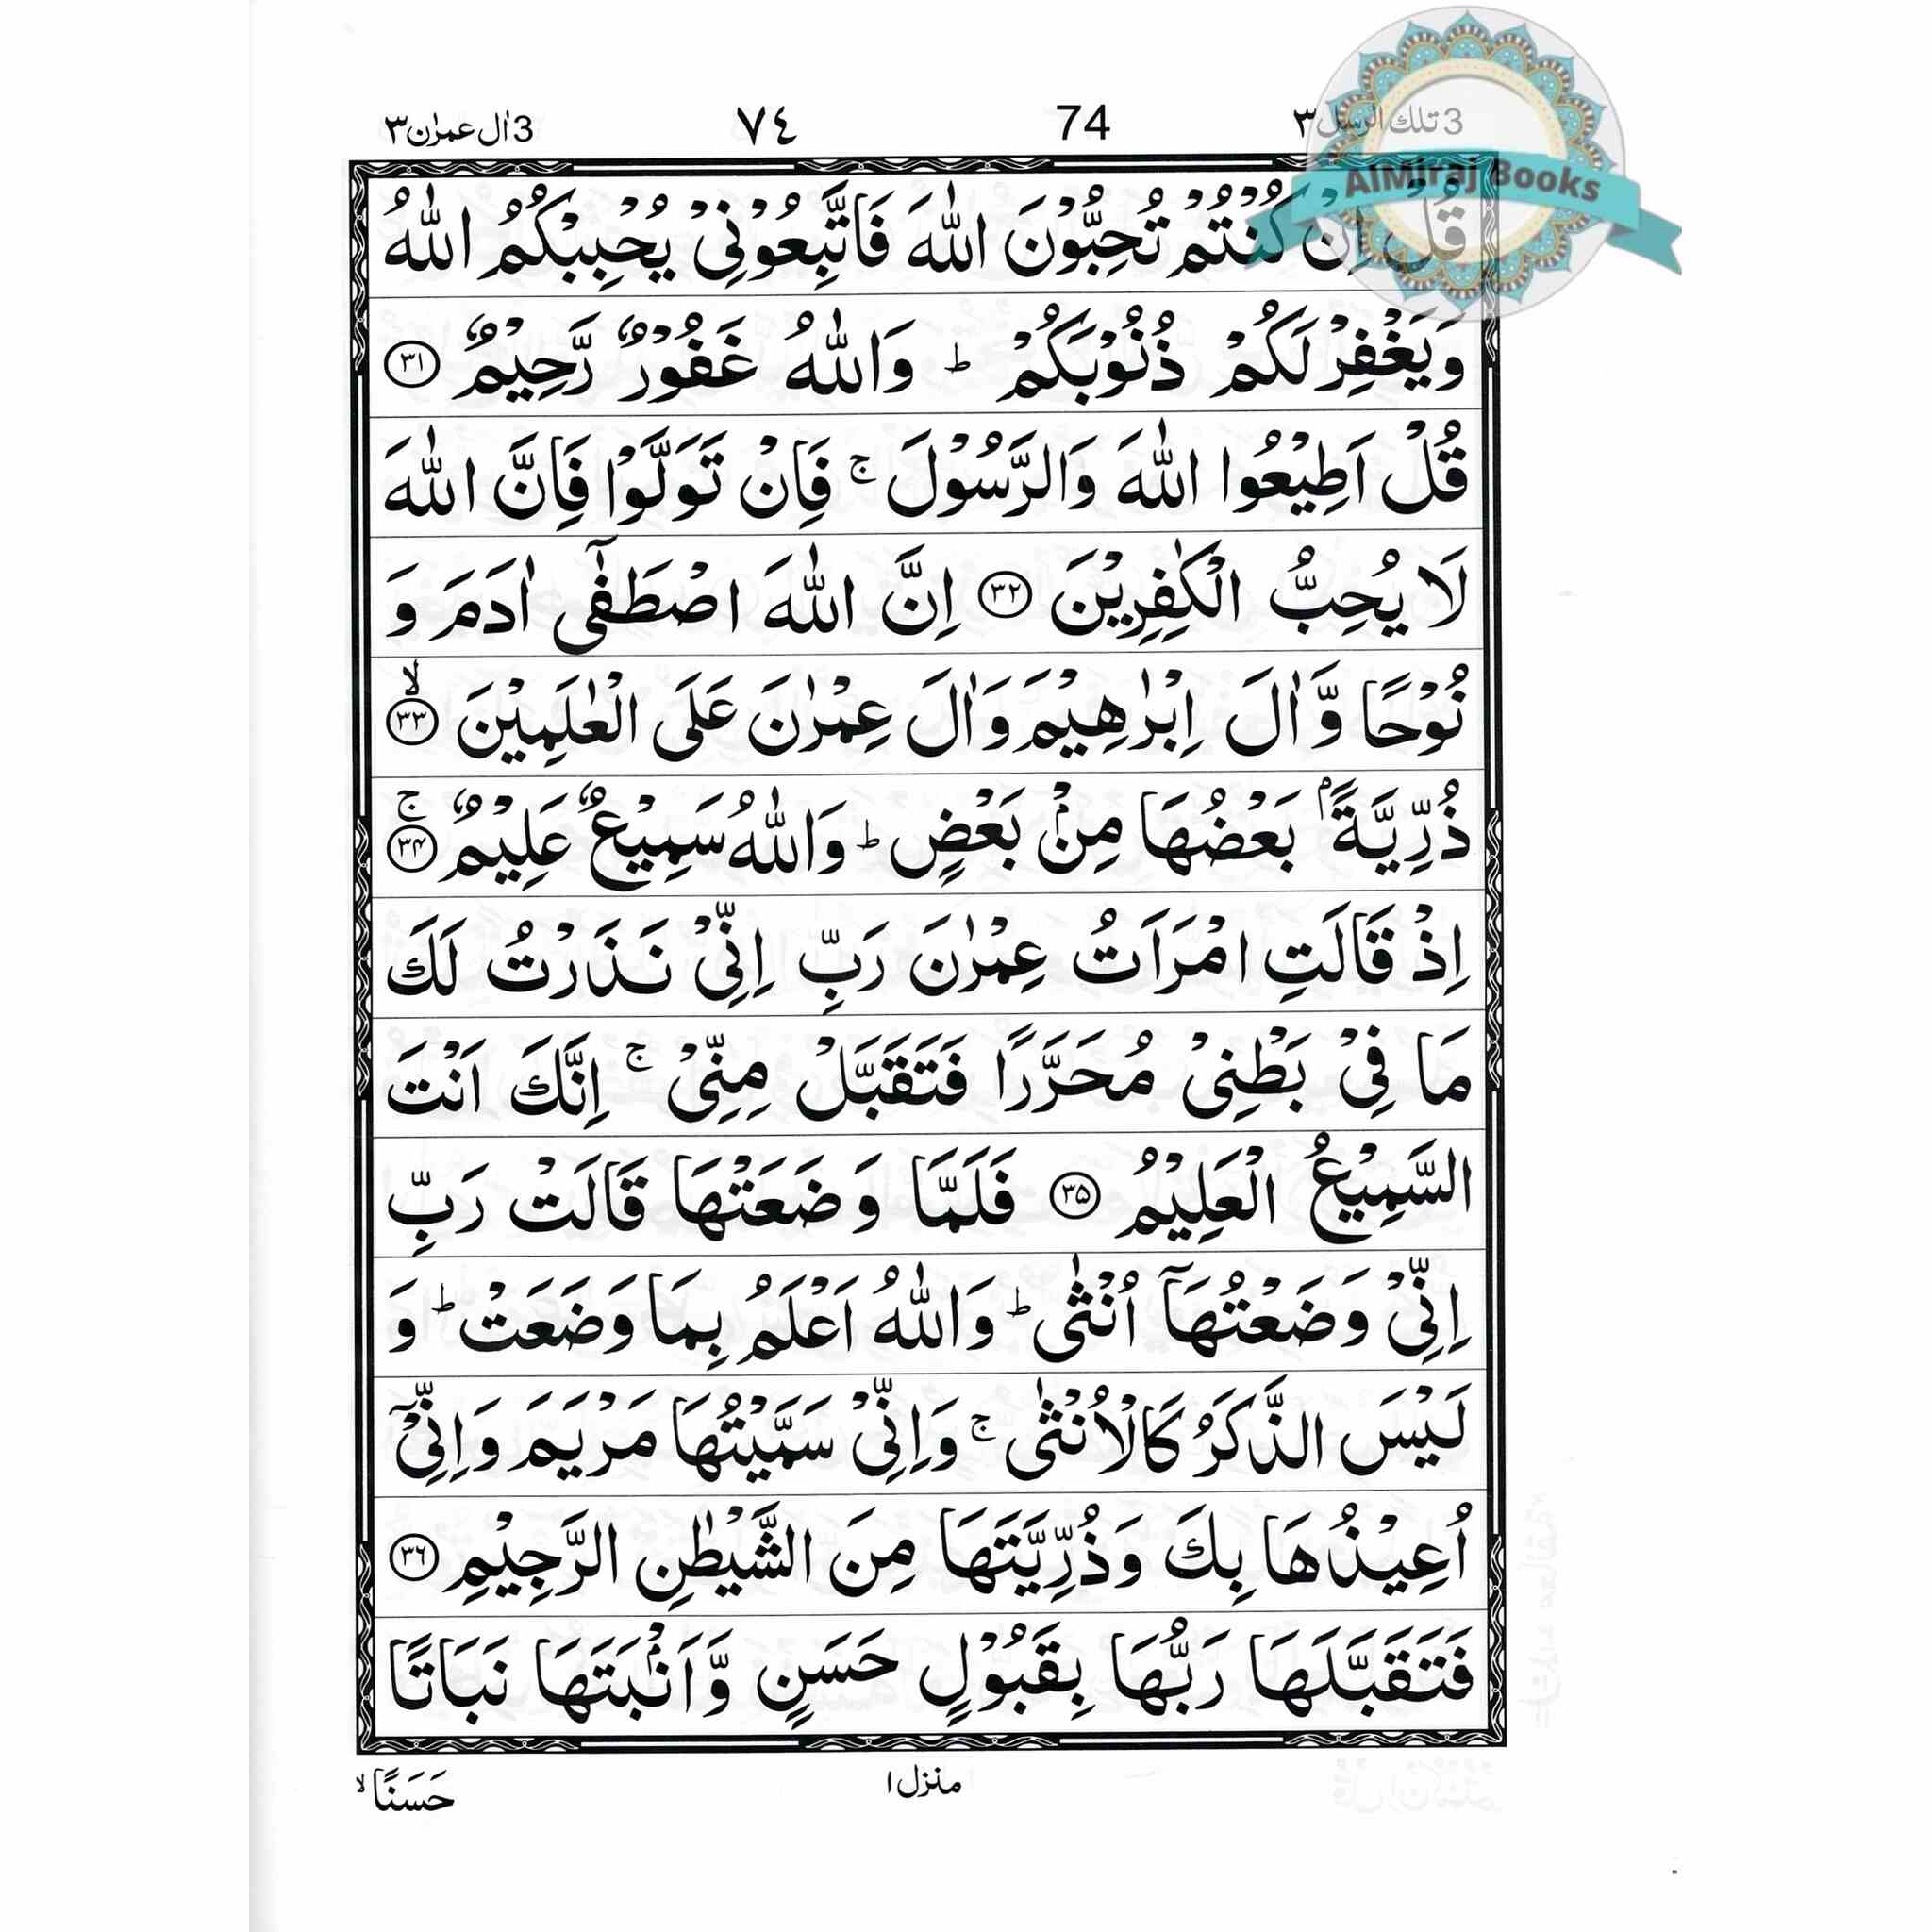 3 تلك الرسل ٣ 74 ٧٤ 3 اٰل عمرٰن ٣
AlMiraj Books
قُلْ اِنْ كُنْتُمْ تُحِبُّوْنَ اللّٰهَ فَاتَّبِعُوْنِيْ يُحْبِبْكُمُ اللّٰهُ
وَيَغْفِرْ لَكُمْ ذُنُوْبَكُمْ ؕ وَاللّٰهُ غَفُوْرٌ رَّحِيْمٌ ۝٣١
قُلْ اَطِيْعُوا اللّٰهَ وَالرَّسُوْلَ ۚ فَاِنْ تَوَلَّوْا فَاِنَّ اللّٰهَ
لَا يُحِبُّ الْكٰفِرِيْنَ ۝٣٢ اِنَّ اللّٰهَ اصْطَفٰٓى اٰدَمَ وَ
نُوْحًا وَّاٰلَ اِبْرٰهِيْمَ وَاٰلَ عِمْرٰنَ عَلَى الْعٰلَمِيْنَ ۝٣٣ۙ
ذُرِّيَّةًۢ بَعْضُهَا مِنْۢ بَعْضٍ ؕ وَاللّٰهُ سَمِيْعٌ عَلِيْمٌ ۝٣۴ۚ
اِذْ قَالَتِ امْرَاَتُ عِمْرٰنَ رَبِّ اِنِّيْ نَذَرْتُ لَكَ
مَا فِيْ بَطْنِيْ مُحَرَّرًا فَتَقَبَّلْ مِنِّيْ ۚ اِنَّكَ اَنْتَ
السَّمِيْعُ الْعَلِيْمُ ۝٣۵ فَلَمَّا وَضَعَتْهَا قَالَتْ رَبِّ
اِنِّيْ وَضَعْتُهَآ اُنْثٰى ؕ وَاللّٰهُ اَعْلَمُ بِمَا وَضَعَتْ ؕ وَ
لَيْسَ الذَّكَرُ كَالْاُنْثٰى ۚ وَاِنِّيْ سَمَّيْتُهَا مَرْيَمَ وَاِنِّيْٓ
اُعِيْذُهَا بِكَ وَذُرِّيَّتَهَا مِنَ الشَّيْطٰنِ الرَّجِيْمِ ۝٣٦
فَتَقَبَّلَهَا رَبُّهَا بِقَبُوْلٍ حَسَنٍ وَّاَنْۢبَتَهَا نَبَاتًا
منزل ١ حَسَنًا ۙ